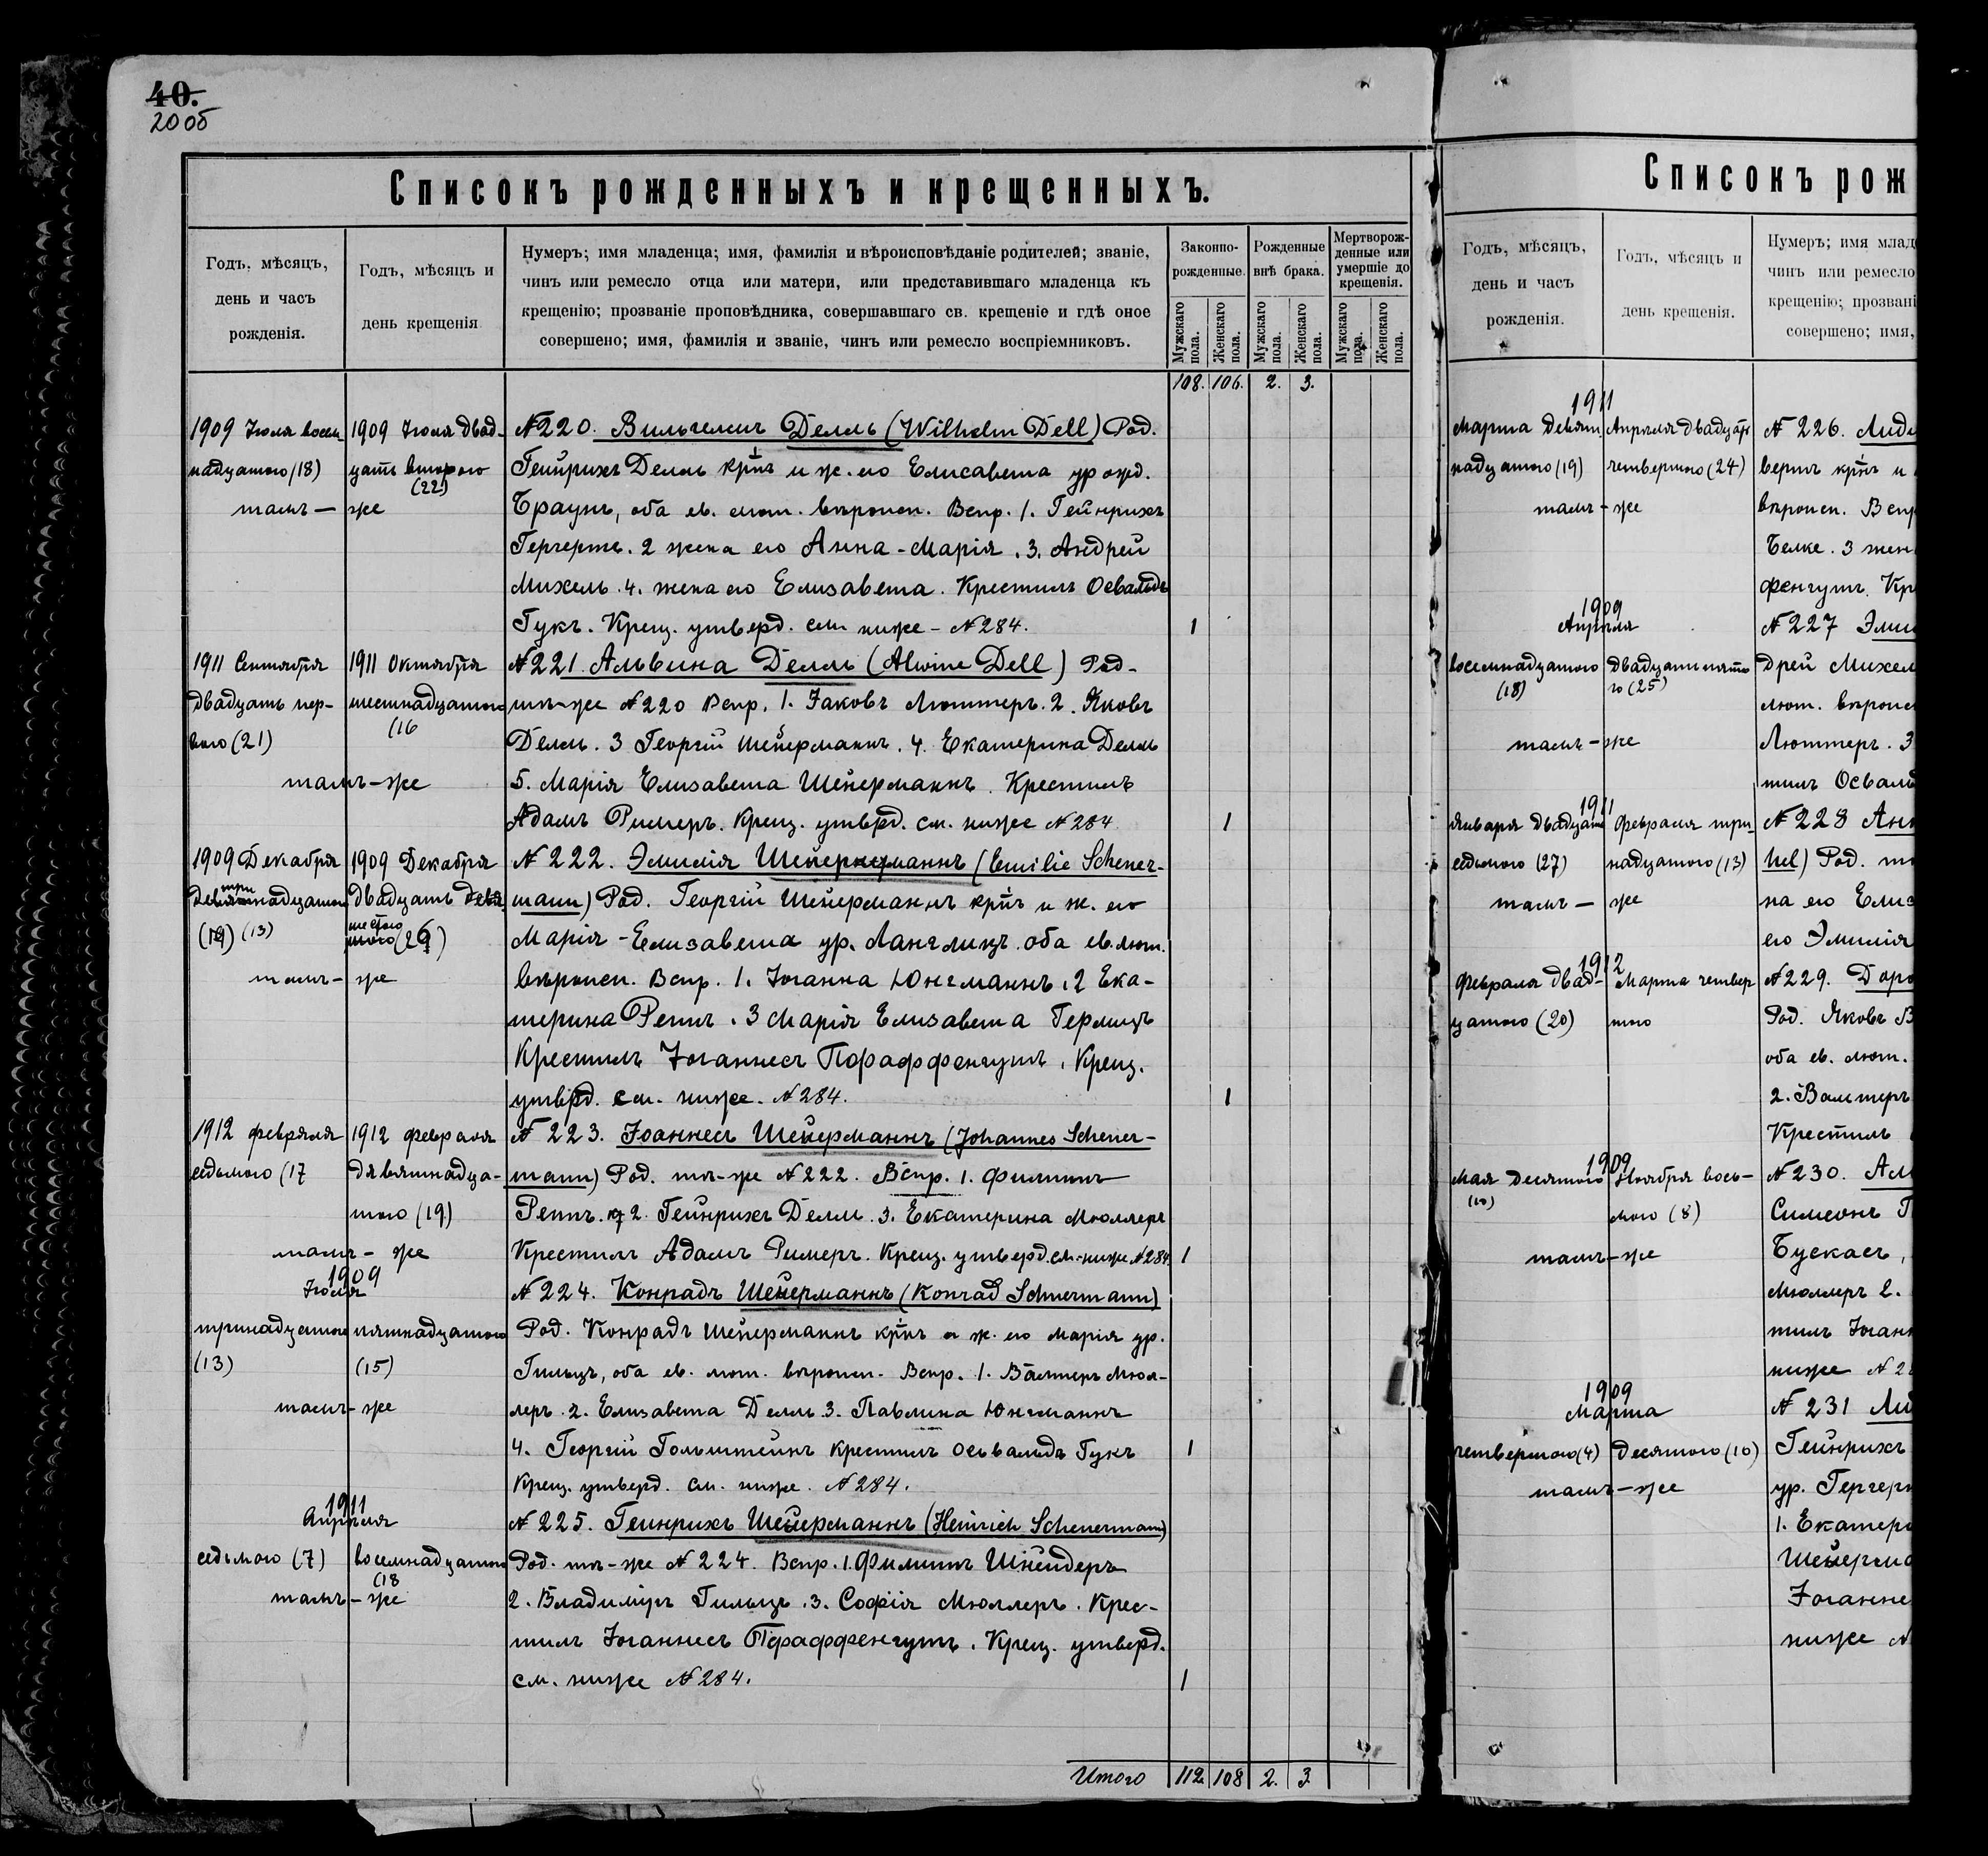 40.
20об
Списокъ рожденныхъ и крещенныхъ.
Годъ, мѣсяцъ,
день и часъ
рожденія.
Годъ, мѣсяцъ и
день крещенія
Нумеръ; имя младенца; имя, фамилія и вѣроисповѣданіе родителей; званіе,
чинъ или ремесло отца или матери, или представившаго младенца къ
крещенію; прозваніе проповѣдника, совершавшаго св. крещеніе и гдѣ оное
совершено; имя, фамилія и званіе, чинъ или ремесло воспріемниковъ.
Законно-
рожденные.
Рожденные
внѣ брака.
Мертворож-
денные или
умершіе до
крещенія.
Мужскаго пола.
Женскаго пола.
Мужскаго пола.
Женскаго пола.
Мужскаго пола.
Женскаго пола.
108. 106. 2. 3.
1909 Іюля восем-
надцатого (18)
тамъ —
1909 Іюля двад-
цать второго
(22)
же
№ 220. Вильгельмъ Делль (Wilhelm Dell) Род.
Гейнрихъ Делль крнъ и ж. его Елисавета урожд.
Браунъ, оба ев. лют. вѣроисп. Вспр. 1. Гейнрихъ
Гергертъ. 2 жена его Анна-Марія. 3. Андрей
Михель. 4. жена его Елизавета. Крестилъ Освальдъ
Гукъ. Крещ. утверд. см. ниже - № 284. 1
1911 Сентября
двадцать пер-
ваго (21)
тамъ-же
1911 Октября
шестнадцатого
(16
№ 221. Альвина Делль (Alwine Dell) Род-
тѣ-же № 220 Вспр. 1. Іаковъ Люттеръ. 2. Яковъ
Делль. 3 Георгій Шейерманнъ. 4. Екатерина Делль
5. Марія Елизавета Шейерманнъ. Крестилъ
Адамъ Римеръ. Крещ. утверд. см. ниже № 284. 1
1909 Декабря
три
(13)
тамъ-
1909 Декабря
двадцать
шестого
же
№ 222. Эмилія Шейерманнъ (Emilie Scheuer-
mann) Род. Георгій Шейерманнъ крнъ и ж. его
Марія-Елизавета ур. Ланглицъ. оба ев. лют.
вѣроисп. Вспр. 1. Іоганна Юнгманнъ. 2 Ека-
терина Реппъ. 3 Марія Елизавета Герлицъ
Крестилъ Іоганнесъ Пфаффенгутъ. Крещ.
утврд. см. ниже. № 284. 1
1912 февраля
седьмого (17
тамъ - же
1912 февраля
девятнадца-
того (19)
№ 223. Іоаннесъ Шейерманнъ (Johannes Scheuer-
mann) Род. тѣ-же № 222. Вспр. 1. Филиппъ
Реппъ. 2. Гейнрихъ Делль. 3. Екатерина Мюллеръ
Крестилъ Адамъ Римеръ. Крещ. утверд. см. ниже № 284. 1
1909
Іюля
тринадцатого
(13)
тамъ-же
пятнадцатого
(15)
№ 224. Конрадъ Шейерманнъ (Konrad Schuermann)
Род. Конрадъ Шейерманнъ крнъ и ж. его Марія ур.
Гильцъ, оба ев. лют. вѣроисп. Вспр. 1. Валтеръ Мюл-
леръ. 2. Елизавета Делль 3. Павлина Юнгманнъ
4. Георгій Гольштейнъ Крестилъ Освальдъ Гукъ 1
Крещ. утверд. см. ниже. № 284.
1911
Апрѣля
седьмого (7)
тамъ - же
восемнадцатого
(18
№ 225. Гейнрихъ Шейерманнъ (Heinrich Scheuermann)
Род. тѣ-же № 224. Вспр. 1. Филиппъ Шнейдеръ
2. Владиміръ Гильцъ. 3. Софія Мюллеръ. Крес-
тилъ Іоганнесъ Пфаффенгутъ. Крещ. утверд.
см. ниже № 284. 1
Итого 112 108 2. 3
Списокъ рож
Годъ, мѣсяцъ,
день и часъ
рожденія.
Годъ, мѣсяцъ и
день крещенія.
Нумеръ; имя млад
чинъ или ремесло
крещенію; прозвані
совершено; имя,
1911
Марта девят-
надцатого (19)
тамъ - же
Апрѣля двадцать
четвертого (24)
№ 226. Лиди
вертъ крнъ и
вѣроисп. Вспр
Белке. 3 жен
фенгутъ. Кр
1909
Апрѣля
восемнадцатого
(18)
тамъ - же
двадцатипято
го (25)
№ 227 Эми
дрей Михел
лют. вѣроисп
Люттеръ. 3
тилъ Осваль
1911
Января двадцать
седьмого (27)
тамъ — же
февраля три-
надцатого (13)
№ 228 Анн
hel) Род. т
на его Елиз
его Эмилія
1912
Февраля двад-
цатого (20)
Марта четвер
того
№ 229. Доро
Род. Яковъ В
оба ев. лют.
2. Валтеръ
Крестилъ
1909
Мая десятого
(10)
тамъ - же
Ноября вось-
мого (8)
№ 230. Аль
Симеонъ Г
Бускасъ,
Мюллеръ 2.
тилъ Іоган
ниже № 28
1909
Марта
четвертого (4)
тамъ - же
десятого (10)
№ 231 Ли
Гейнрихъ
ур. Гергер
1. Екатер
Шейерма
Іоганне
ниже №